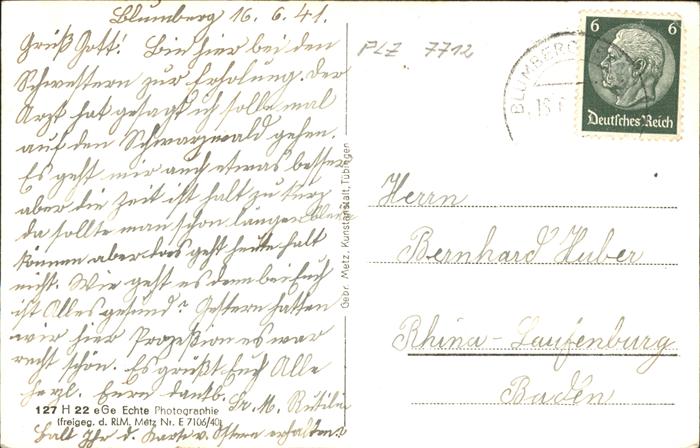 Blumberg 16. 6. 41.
Grüß Gott! Bin hier bei den
Schwestern zur Erholung. Der
Arzt hat gesagt ich solle mal
auf den Schwarzwald gehen.
Es geht mir auch etwas besser
aber die Zeit ist halt zu kurz
da sollte man schon länger bleiben
können aber das geht heute halt
nicht. Wie geht es denn bei Euch
ist Alles gesund? Gestern hatten
wir hier Prozession es war
recht schön. Es grüßt Euch Alle
herzl. Eure dankb.
Sr. M.
habt Ihr d. Karte v. Ostern erhalten?
127 H 22 eGe Echte Photographie
(freigeg. d. RLM. Metz Nr. E 7106/40)
Gebr. Metz, Kunstanstalt, Tübingen
PLZ 7712
BLUMBERG
6 6
Deutsches Reich
Herrn
Bernhard Huber
Rhina-Laufenburg
Baden